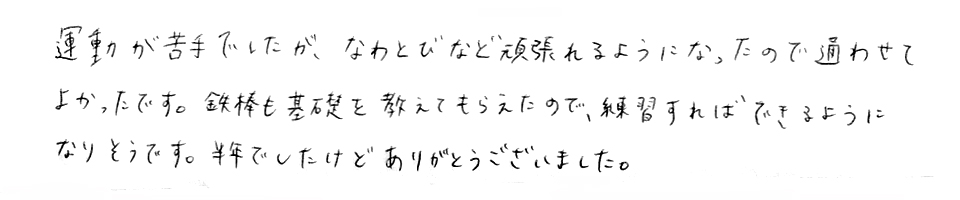 運動が苦手でしたが、なわとびなど頑張れるようになったので通わせて
よかったです。鉄棒も基礎を教えてもらえたので、練習すればできるように
なりそうです。半年でしたけどありがとうございました。